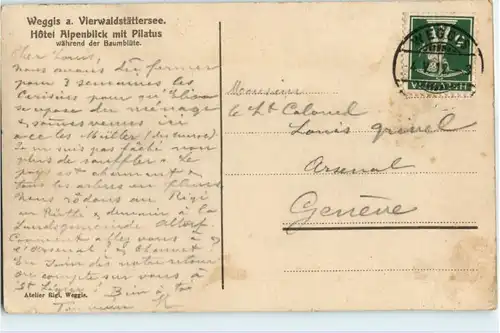 Weggis a. Vierwaldstättersee.
Hôtel Alpenblick mit Pilatus
während der Baumblüte.
Cher Louis,
Nous avons dû fermer
pour 3 semaines les
Cerisiers pour qu'Elisa
se repose du ménage
& sommes venus ici
avec les Müller
Je ne suis pas fâché non
plus de souffler. Le
pays est charmant &
tous les arbres en fleurs.
Nous rédons au Rigi
au Rütli & demain à la
Landsgemeinde
Comment allez vous à
l'Arsenal & à
En Juin dès notre retour
on compte sur vous à
St Légier. Bien à toi
Atelier Rigi, Weggis.
WEGGIS
HELVETIA
Monsieur
le Lt Colonel
Louis Grinel
Arsenal
Genève